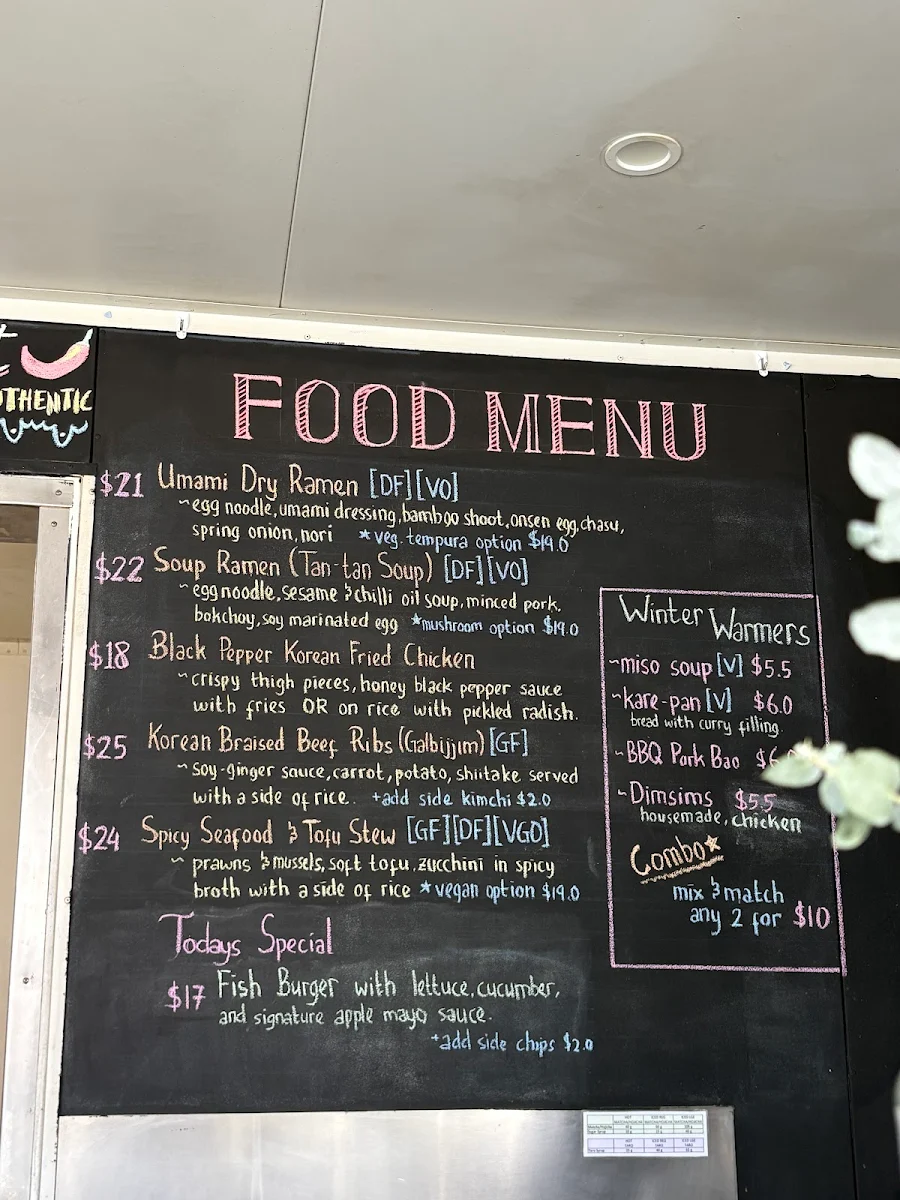 AUTHENTIC
FOOD MENU
$21 Umami Dry Ramen [DF][VO]
~egg noodle, umami dressing, bamboo shoot, onsen egg, chasu,
spring onion, nori ★veg. tempura option $19.0
$22 Soup Ramen (Tan-tan Soup) [DF][VO]
~egg noodle, sesame & chilli oil soup, minced pork,
bokchoy, soy marinated egg ★mushroom option $19.0
$18 Black Pepper Korean Fried Chicken
~crispy thigh pieces, honey black pepper sauce
with fries OR on rice with pickled radish.
$25 Korean Braised Beef Ribs (Galbijjim) [GF]
~soy-ginger sauce, carrot, potato, shiitake served
with a side of rice. +add side kimchi $2.0
$24 Spicy Seafood & Tofu Stew [GF][DF][VGO]
~ prawns & mussels, soft tofu, zucchini in spicy
broth with a side of rice ★vegan option $19.0
Todays Special
$17 Fish Burger with lettuce, cucumber,
and signature apple mayo sauce.
+add side chips $2.0
Winter Warmers
~miso soup [V] $5.5
~kare-pan [V] $6.0
bread with curry filling.
~BBQ Pork Bao
~Dimsims $5.5
housemade, chicken
Combo★
mix & match
any 2 for $10